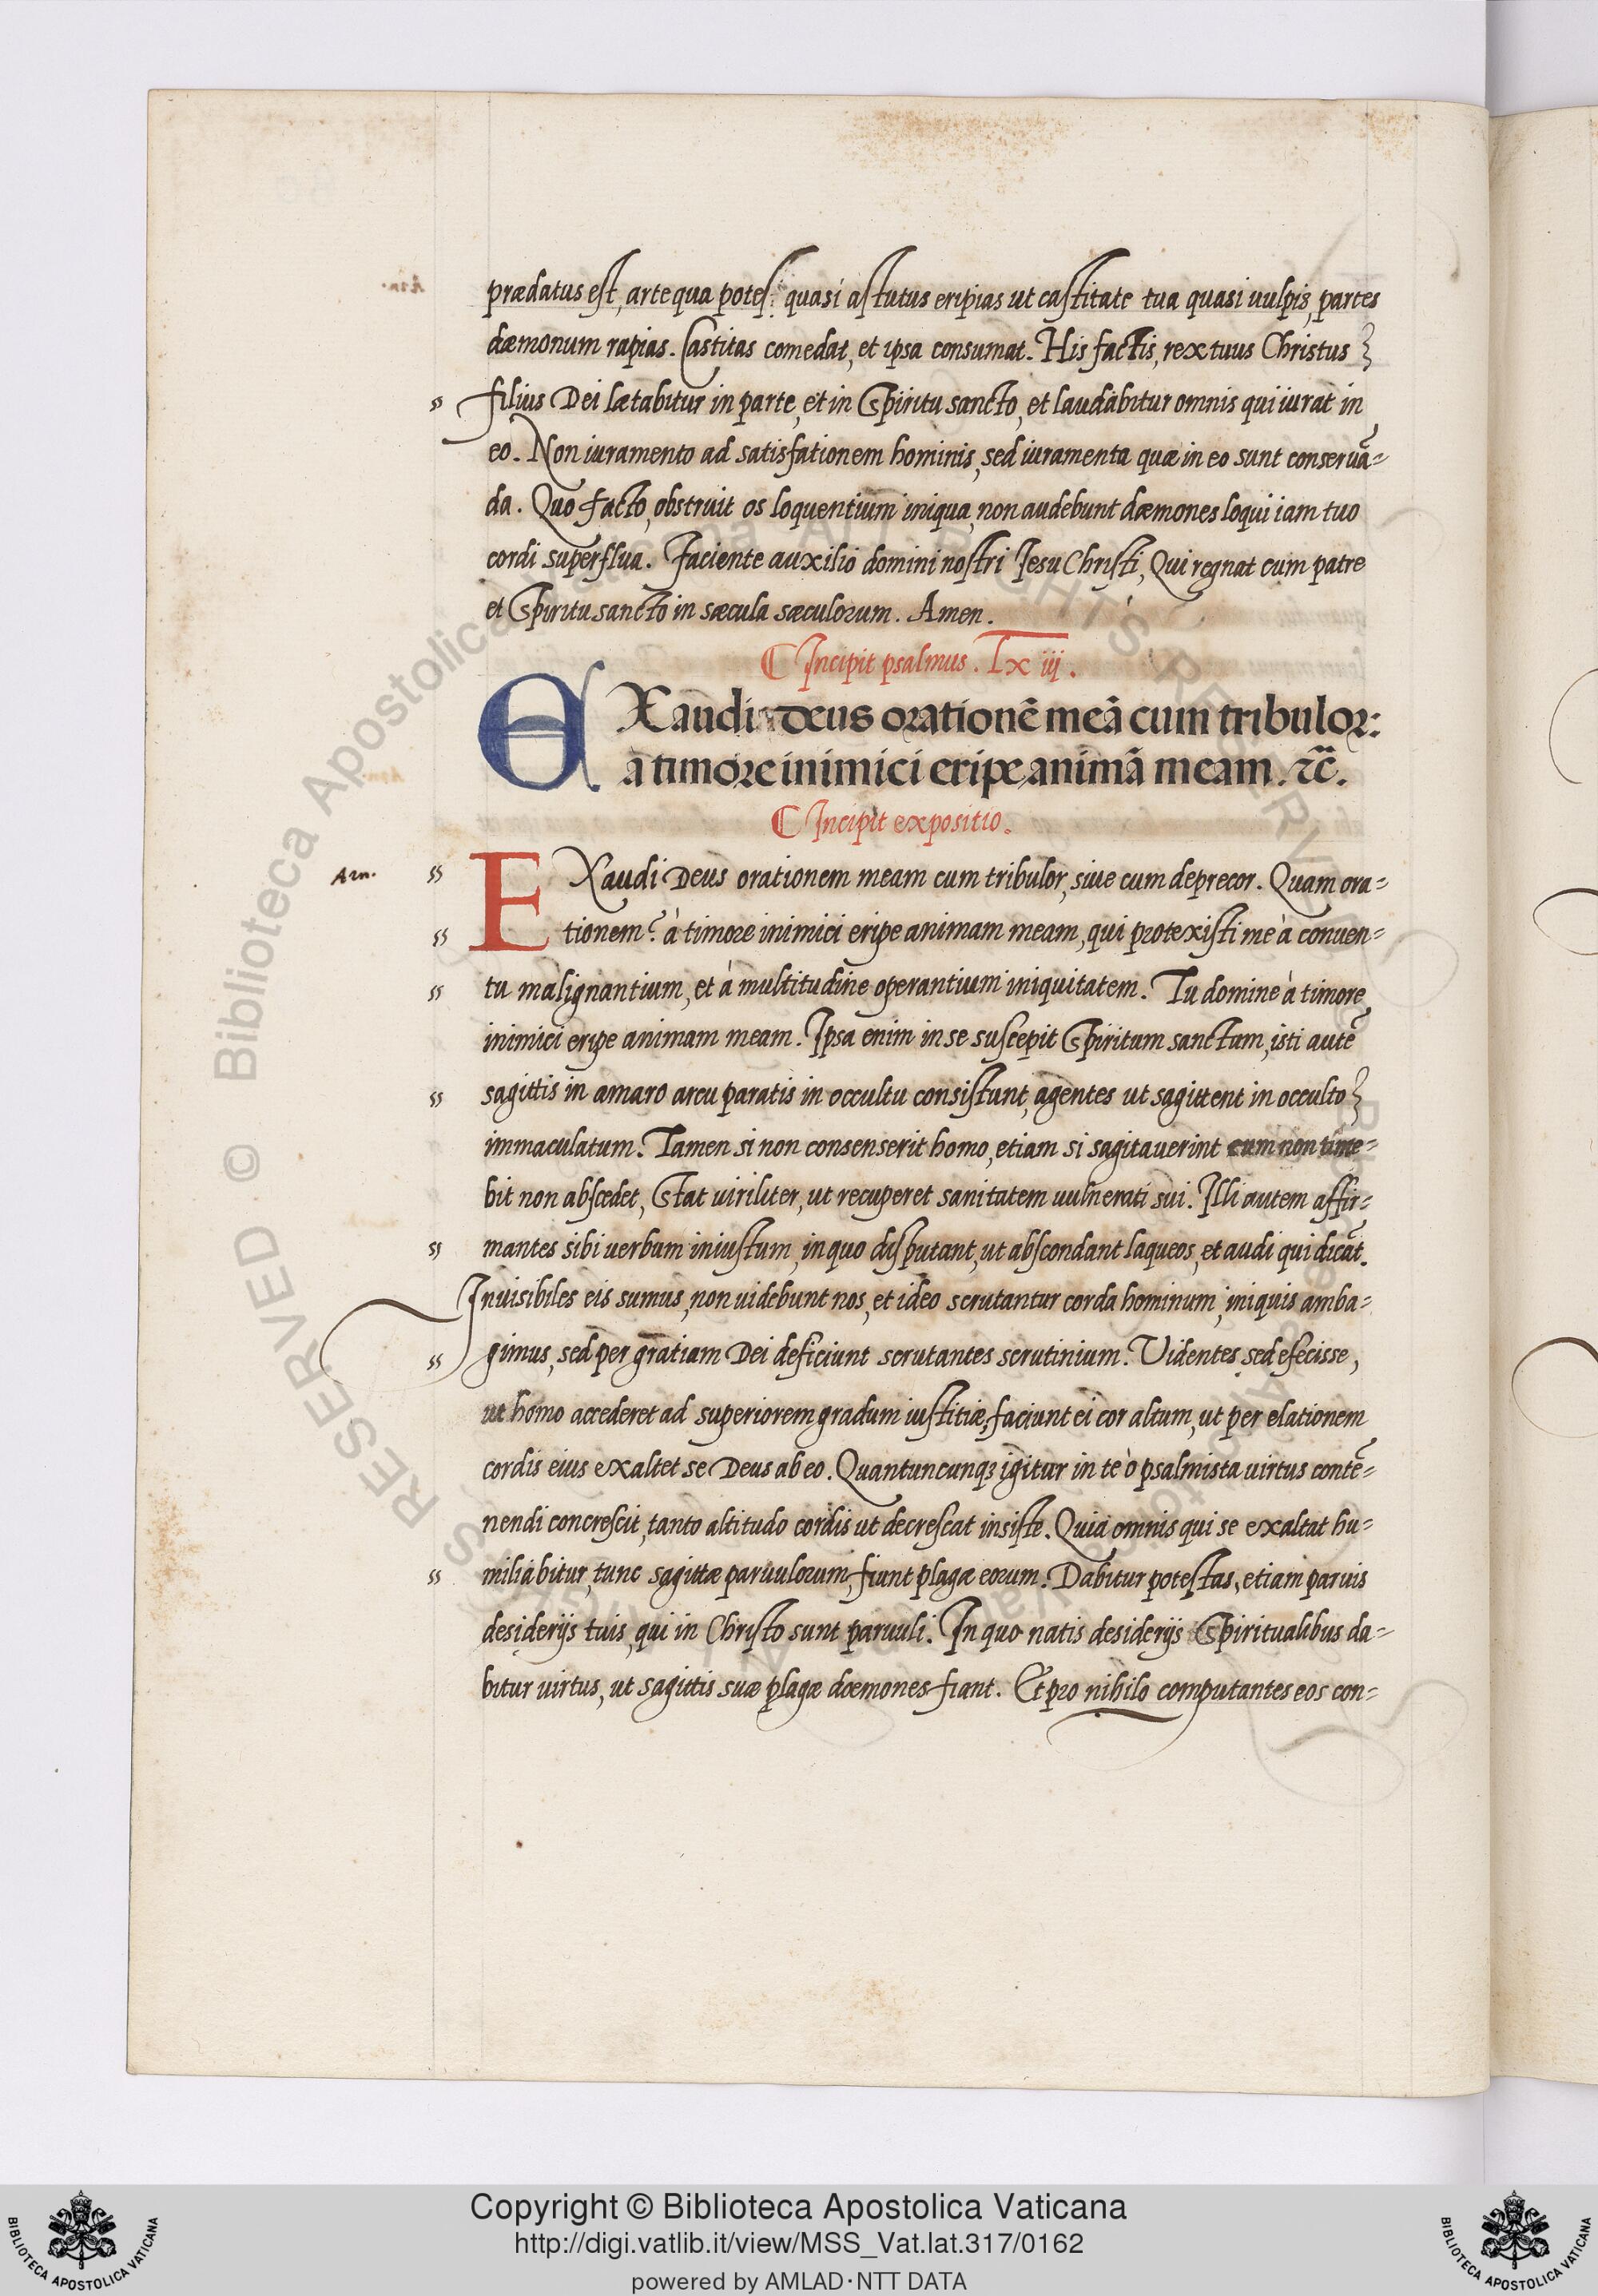 prædatus est, arte qua potes: quasi astutus eripias ut castitate tua quasi uulpis, partes
dæmonum rapias. Castitas comedat, et ipsa consumat. His factis, rex tuus Christus
filius Dei lætabitur in parte, et in Spiritu sancto, et laudabitur omnis qui iurat in
eo. Non iuramento ad satisfationem hominis, sed iuramenta quæ in eo sunt conseruã=
da. Quo facto, obstruit os loquentium iniqua, non audebunt dæmones loqui iam tuo
cordi superflua. Faciente auxilio domini nostri Jesu Christi, Qui regnat cum patre
et Spiritu sancto in sæcula sæculorum. Amen.
Incipit psalmus. Lxiij.
EXaudi deus orationẽ meã cum tribulor:
a timore inimici eripe animã meam. ⁊c̃.
Incipit expositio.
Arn.
EXaudi Deus orationem meam cum tribulor, siue cum deprecor. Quam ora=
tionem? à timore inimici eripe animam meam, qui protexisti me à conuen=
tu malignantium, et à multitudine operantium iniquitatem. Tu domine à timore
inimici eripe animam meam. Ipsa enim in se suscepit Spiritum sanctum, isti autẽ
sagittis in amaro arcu paratis in occultu consistunt, agentes ut sagittent in occulto
immaculatum. Tamen si non consenserit homo, etiam si sagitauerint eum non time=
bit non abscedet, Stat uiriliter, ut recuperet sanitatem uulnerati sui. Illi autem affir=
mantes sibi uerbum iniustum, in quo disputant, ut abscondant laqueos, et audi qui dicãt.
Inuisibiles eis sumus, non uidebunt nos, et ideo scrutantur corda hominum, iniquis amba=
gimus, sed per gratiam Dei deficiunt scrutantes scrutinium. Videntes sed efecisse,
ut homo accederet ad superiorem gradum iustitiæ, faciunt ei cor altum, ut per elationem
cordis eius exaltet se Deus ab eo. Quantuncunqꝫ igitur in te ò psalmista uirtus contẽ=
nendi concrescit, tanto altitudo cordis ut decrescat insiste. Quia omnis qui se exaltat hu=
miliabitur, tunc sagittæ paruulorum, fiunt plagæ eorum. Dabitur potestas, etiam paruis
desiderijs tuis, qui in Christo sunt paruuli. In quo natis desiderijs Spiritualibus da=
bitur uirtus, ut sagittis suæ plagæ dæmones fiant. Et pro nihilo computantes eos con=
Copyright © Biblioteca Apostolica Vaticana
http://digi.vatlib.it/view/MSS_Vat.lat.317/0162
powered by AMLAD·NTT DATA